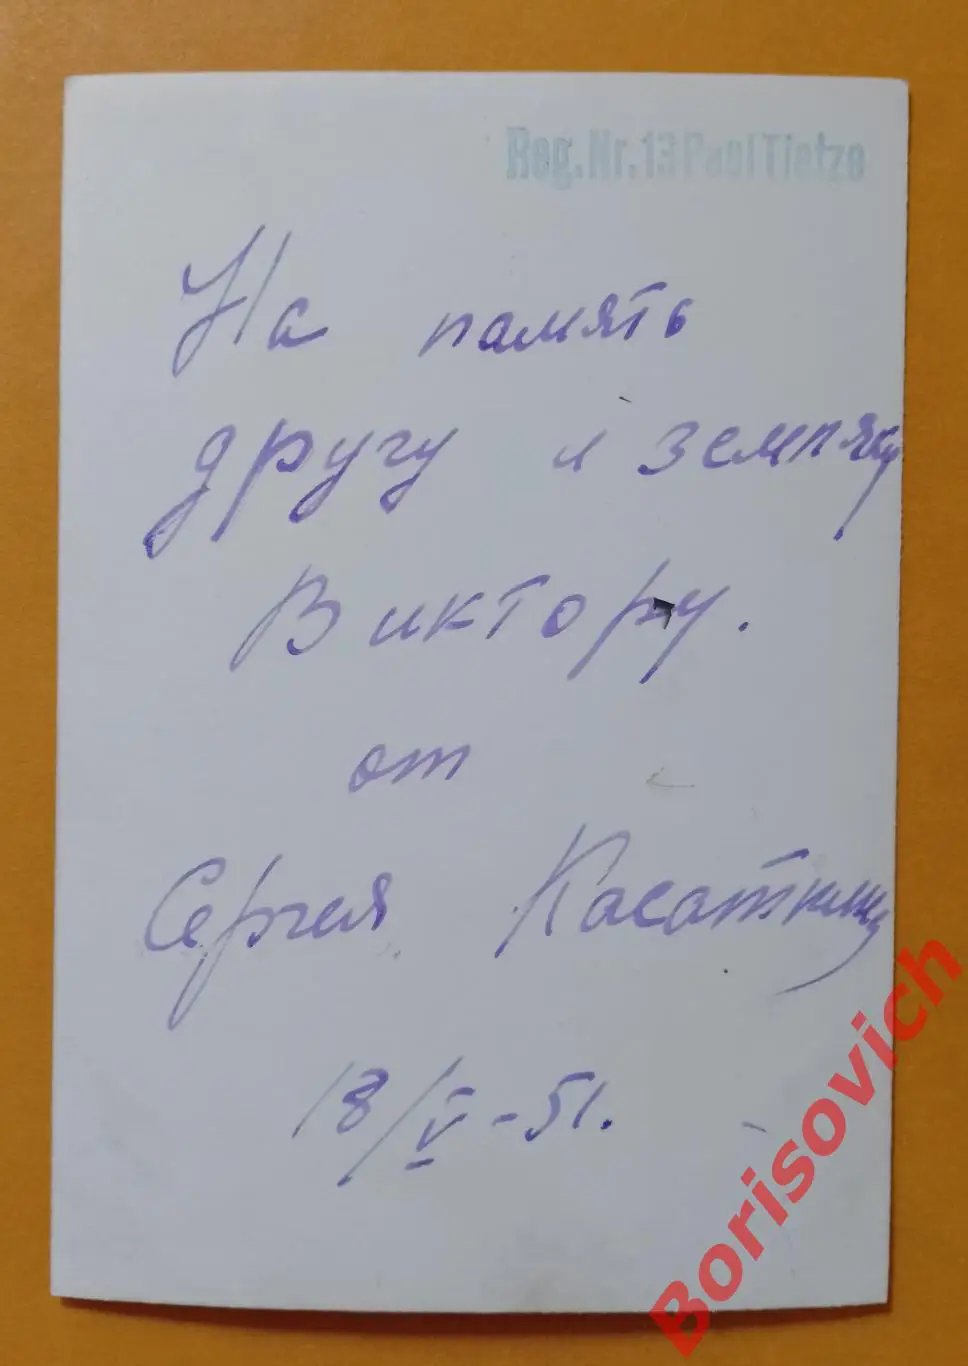 Reg. Nr. 13 Paul Tietze
На память
другу и земляку
Виктору.
от
Сергея Касаткина
18/V-51.
Borisovich